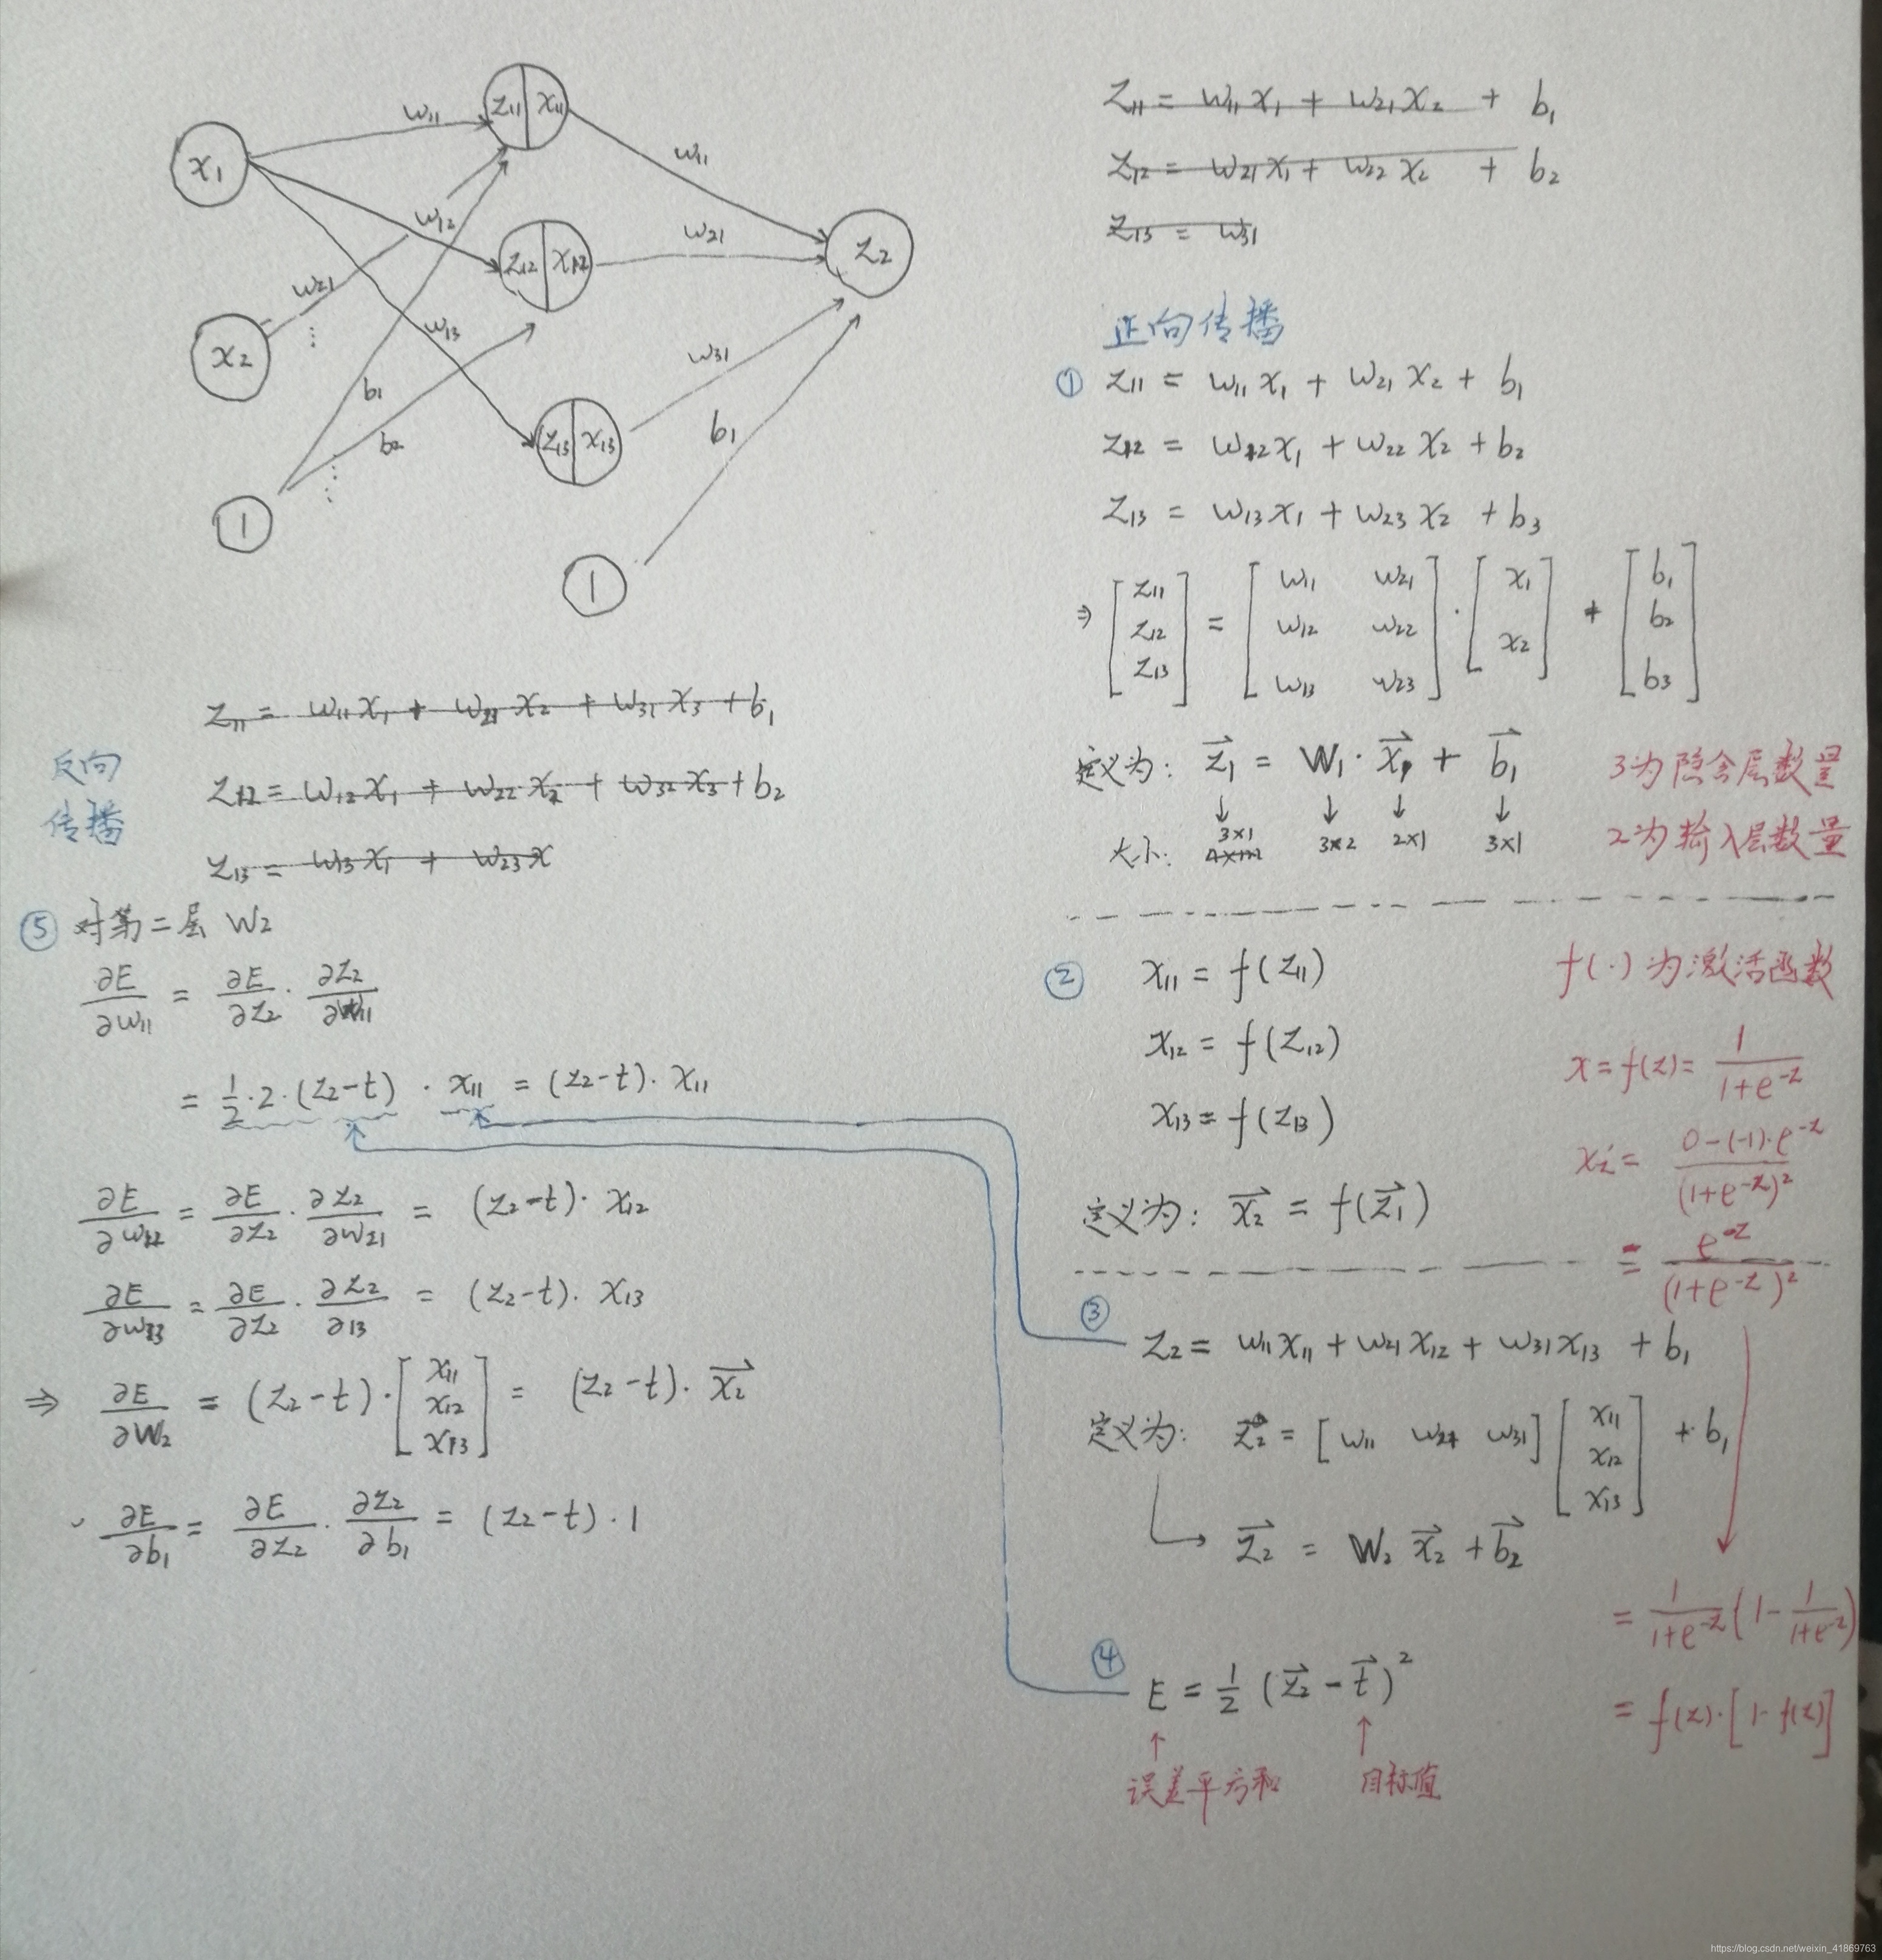 x₁
x₂
1
1
z₁₁ | x₁₁
z₁₂ | x₁₂
z₁₃ | x₁₃
z₂
w₁₁
w₁₂
w₂₁
w₁₃
b₁
b₂
w₁₁
w₂₁
w₃₁
b₁
z₁₁ = w₁₁x₁ + w₂₁x₂ + b₁
z₁₂ = w₂₁x₁ + w₂₂x₂ + b₂
z₁₃ = w₃₁
正向传播
① z₁₁ = w₁₁x₁ + w₂₁x₂ + b₁
z₁₂ = w₁₂x₁ + w₂₂x₂ + b₂
z₁₃ = w₁₃x₁ + w₂₃x₂ + b₃
⇒ [z₁₁; z₁₂; z₁₃] = [w₁₁ w₂₁; w₁₂ w₂₂; w₁₃ w₂₃] · [x₁; x₂] + [b₁; b₂; b₃]
定义为: z₁→ = W₁ · x₁→ + b₁→
↓ ↓ ↓ ↓
大小: 3×1 3×2 2×1 3×1
3为隐含层数量
2为输入层数量
② x₁₁ = f(z₁₁)
x₁₂ = f(z₁₂)
x₁₃ = f(z₁₃)
定义为: x₂→ = f(z₁→)
f(·)为激活函数
x = f(z) = 1/(1+e^-z)
= (0-(-1)·e^-z)/(1+e^-z)²
= e^-z/(1+e^-z)²
= 1/(1+e^-z) (1 - 1/(1+e^-z))
= f(z)·[1-f(z)]
③ z₂ = w₁₁x₁₁ + w₂₁x₁₂ + w₃₁x₁₃ + b₁
定义为: z₂→ = [w₁₁ w₂₁ w₃₁] [x₁₁; x₁₂; x₁₃] + b₁
z₂→ = W₂ x₂→ + b₂→
④ E = ½ (z₂→ - t→)²
↑ ↑
误差平方和 目标值
反向
传播
z₁₁ = w₁₁x₁ + w₂₁x₂ + w₃₁x₃ + b₁
z₁₂ = w₁₂x₁ + w₂₂x₂ + w₃₂x₃ + b₂
z₁₃ = w₁₃x₁ + w₂₃x
⑤ 对第二层 W₂
∂E/∂w₁₁ = ∂E/∂z₂ · ∂z₂/∂w₁₁
= ½·2·(z₂-t) · x₁₁ = (z₂-t)·x₁₁
= ∂E/∂z₂ · ∂z₂/∂w₂₁ = (z₂-t)· x₁₂
= ∂E/∂z₂ · ∂z₂/∂13 = (z₂-t)· x₁₃
⇒ ∂E/∂W₂ = (z₂-t)·[x₁₁; x₁₂; x₁₃] = (z₂-t)· x₂→
∂E/∂b₁ = ∂E/∂z₂ · ∂z₂/∂b₁ = (z₂-t)·1
https://blog.csdn.net/weixin_41869763